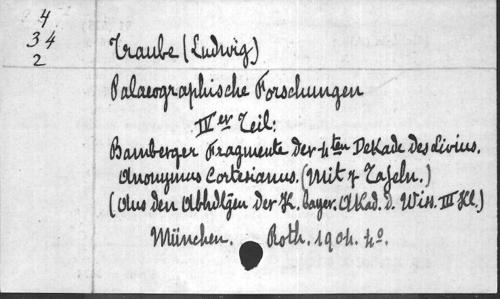 4
34
2
Traube (Ludwig)
Palaeographische Forschungen
IVer Teil:
Bamberger Fragmente der 4ten Dekade des Livius.
Anonymus Cortesianus. (Mit 7 Tafeln.)
(Aus den Abhdlgen der K. bayer. Akad. d. Wiss. III Kl.)
München. Roth. 1904. 4o.